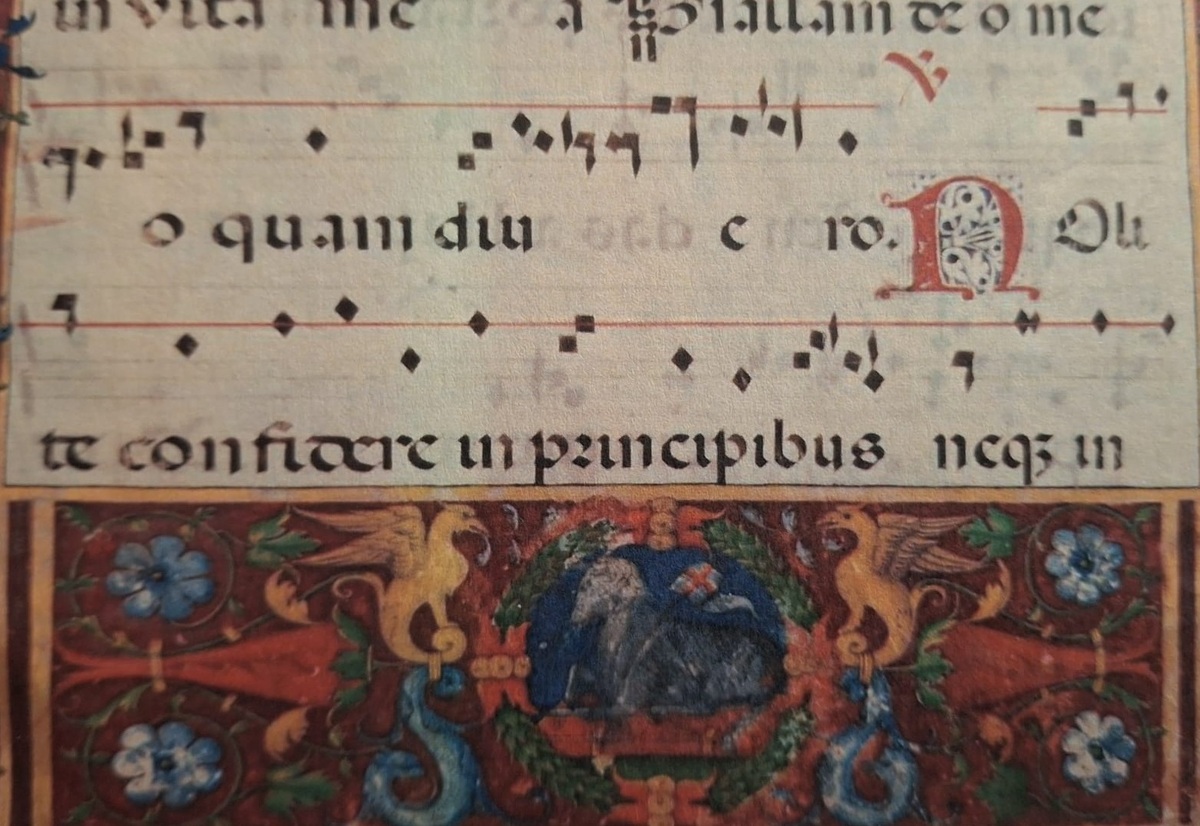 in vita me a ℣ Psallam deo me
ij
℣
o quam diu e ro. NOli
te confidere in principibus neqꝫ in